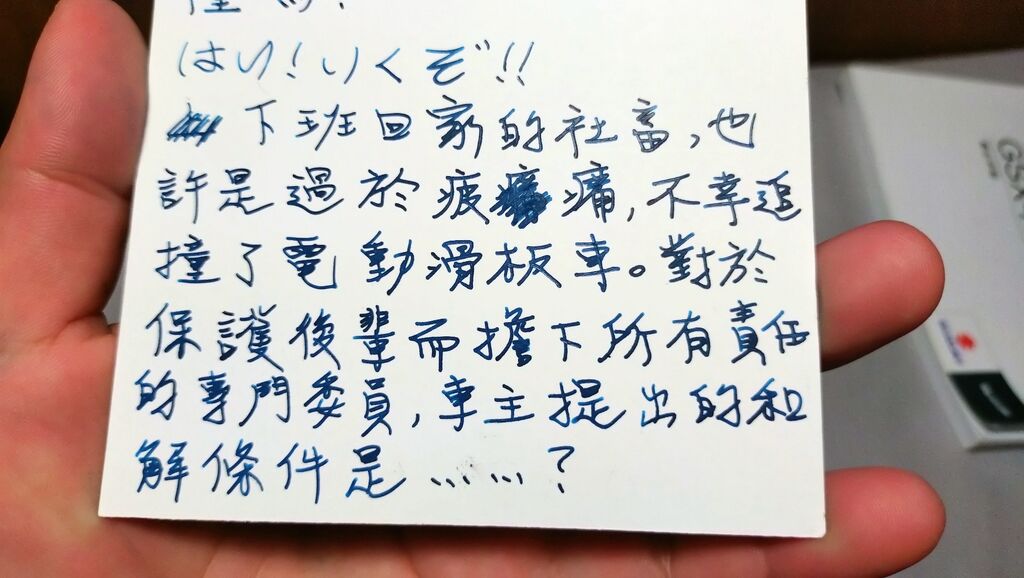 はい!いくぞ!!
下班回家的社畜,也
許是過於疲,不幸追
撞了電動滑板車。對於
保護後輩而擔下所有責任
的專門委員,車主提出的和
解條件是……?